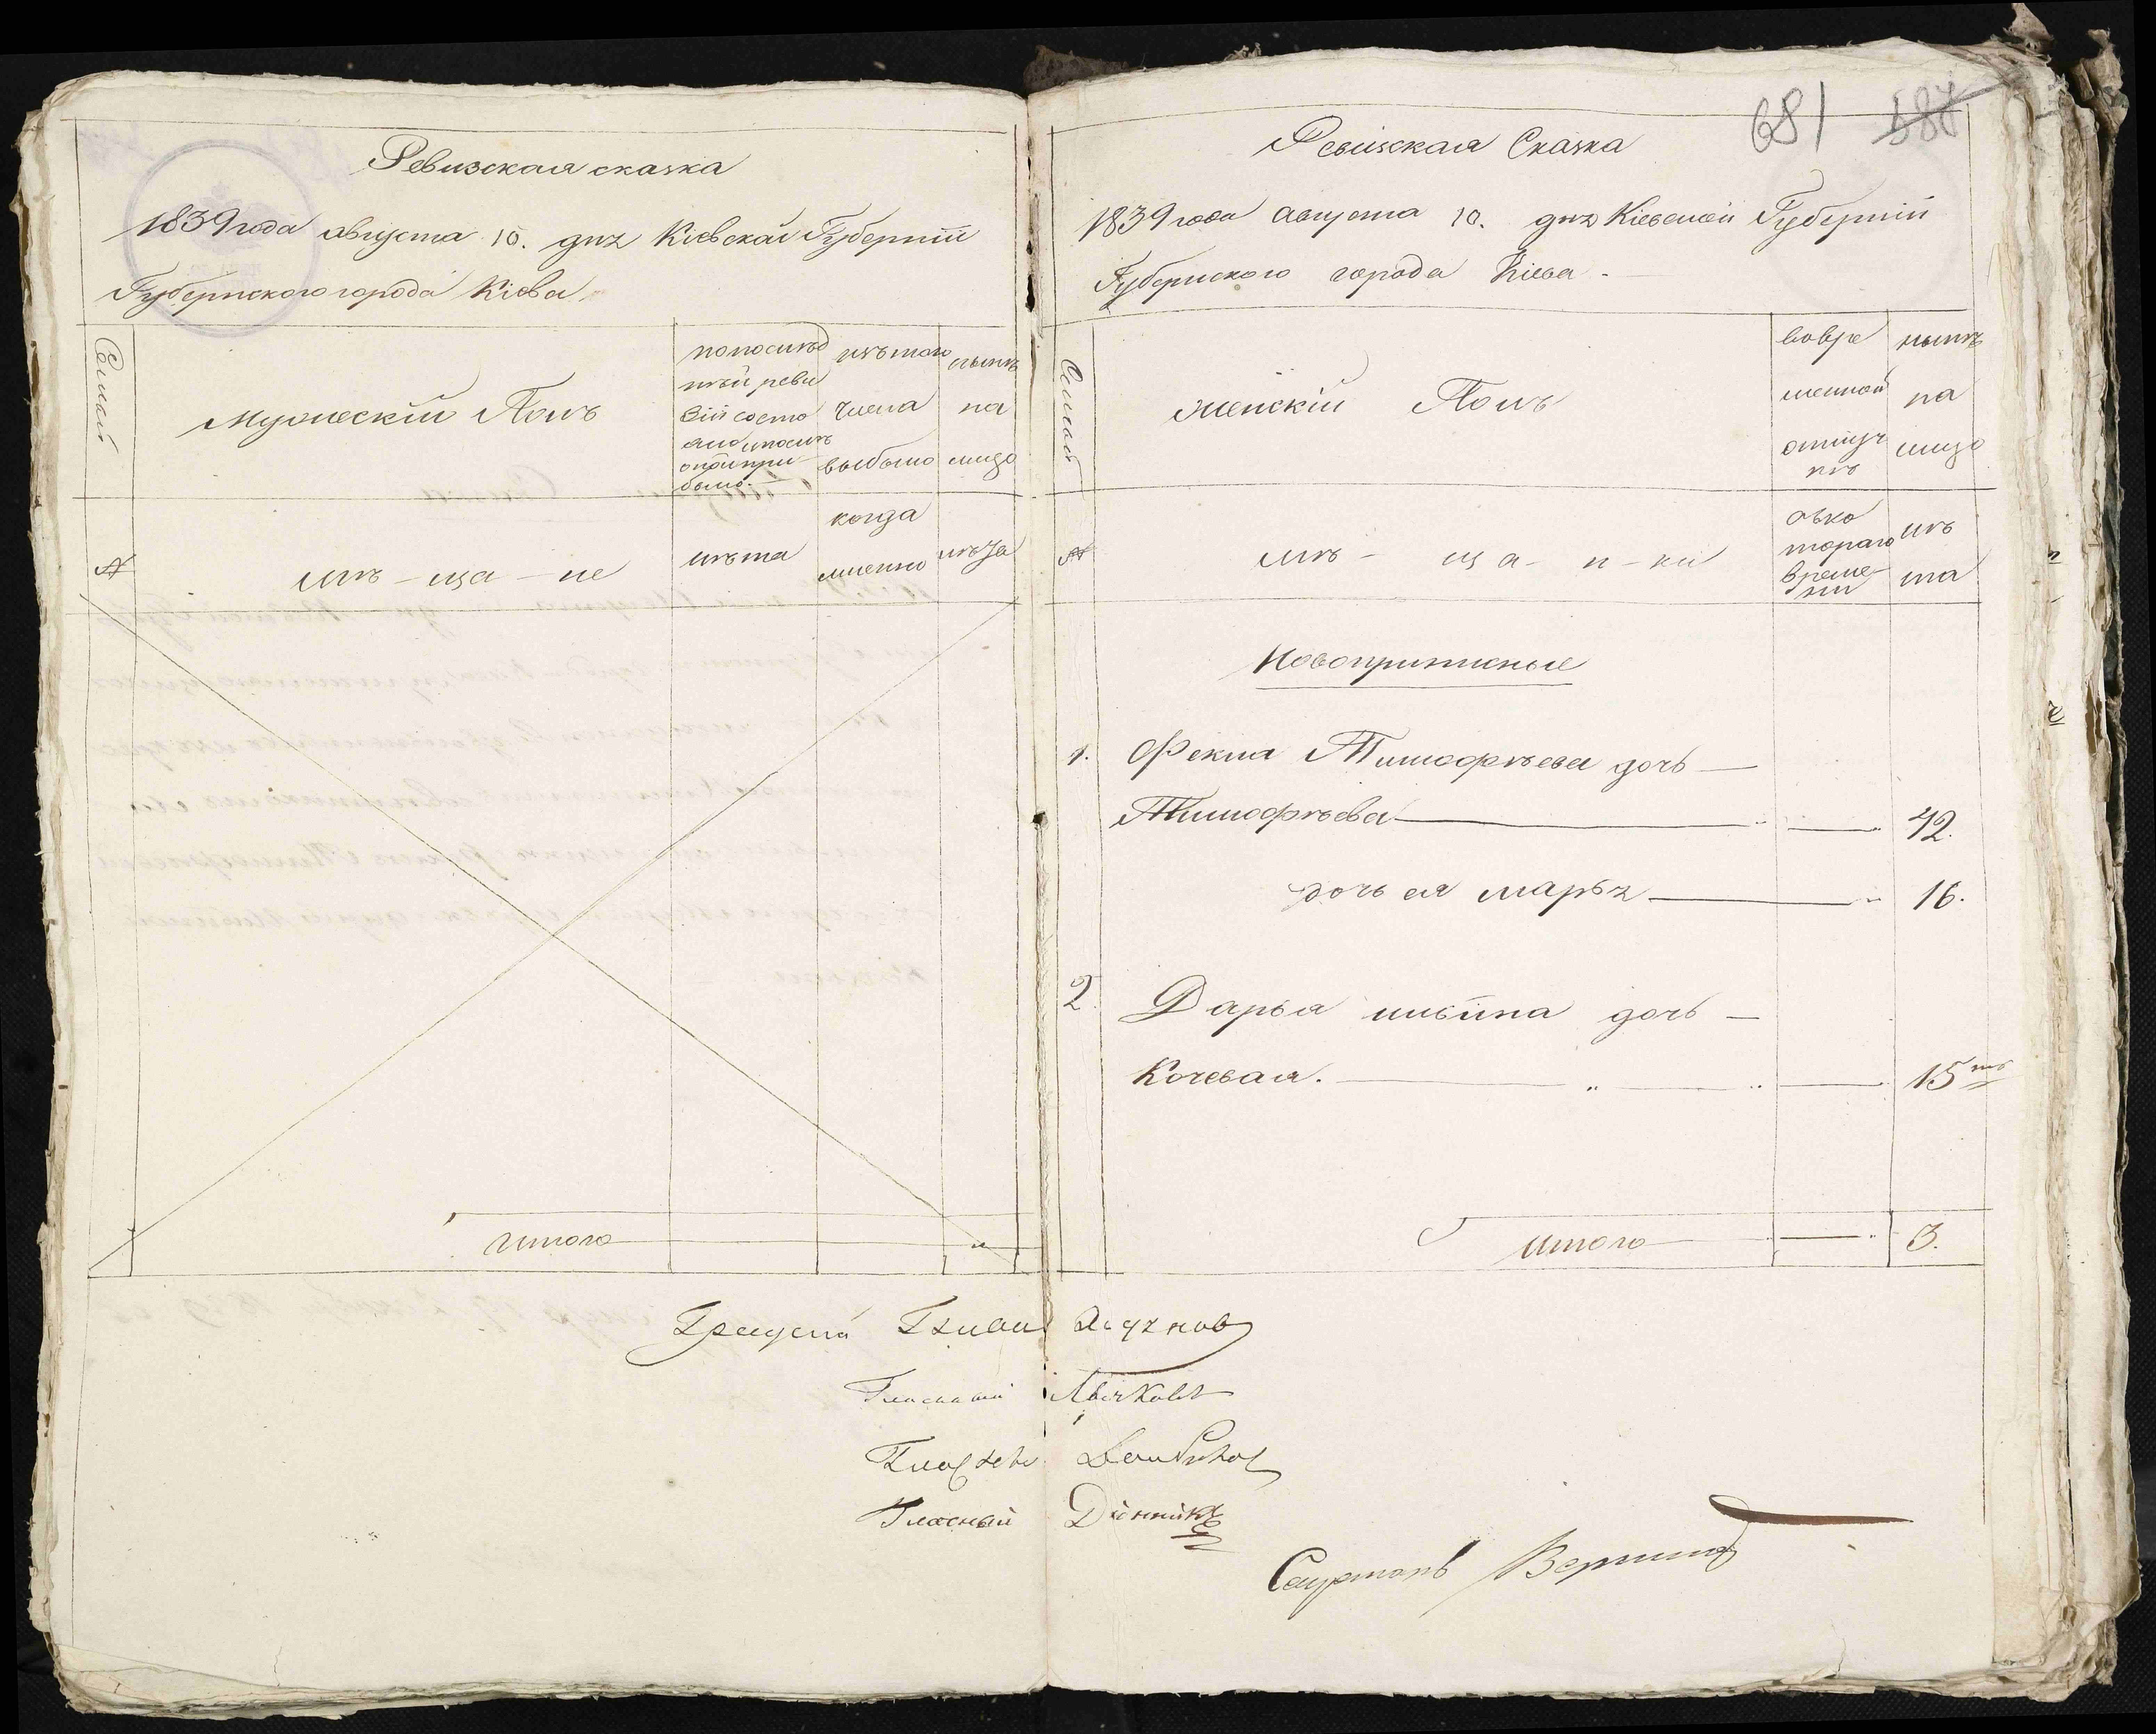 Ревизская сказка
1839 года августа 10. дня Кіевской Губерніи
Губернского города Кіева
Семьи
Мужескій Полъ
по послѣд
ней реви
зіи состо
яло и послѣ
оной при
было.
изъ того
числа
выбыло
нынѣ
на
лицо
№
мѣ-ща-не
лѣта
когда
именно
лѣта
итого
681 587
Ревизская Сказка
1839 года августа 10. дня Кіевской Губерніи
Губернского города Кіева.
Семьи
Женскій Полъ
во вре
менной
отлуч
кѣ
нынѣ
на
лицо
№
мѣ-ща-н-ки
съ ко
тораго
време-
ни
лѣ
та
Новоприписные
1. Фекла Тимофѣева дочь
Тимофѣева 42.
дочь ея марья 16.
2. Дарья ильина дочь
Кочевая. 15
итого 3.
Градской Глава
Гласный
Гласный
Гласный Дѣнникъ
Секретарь